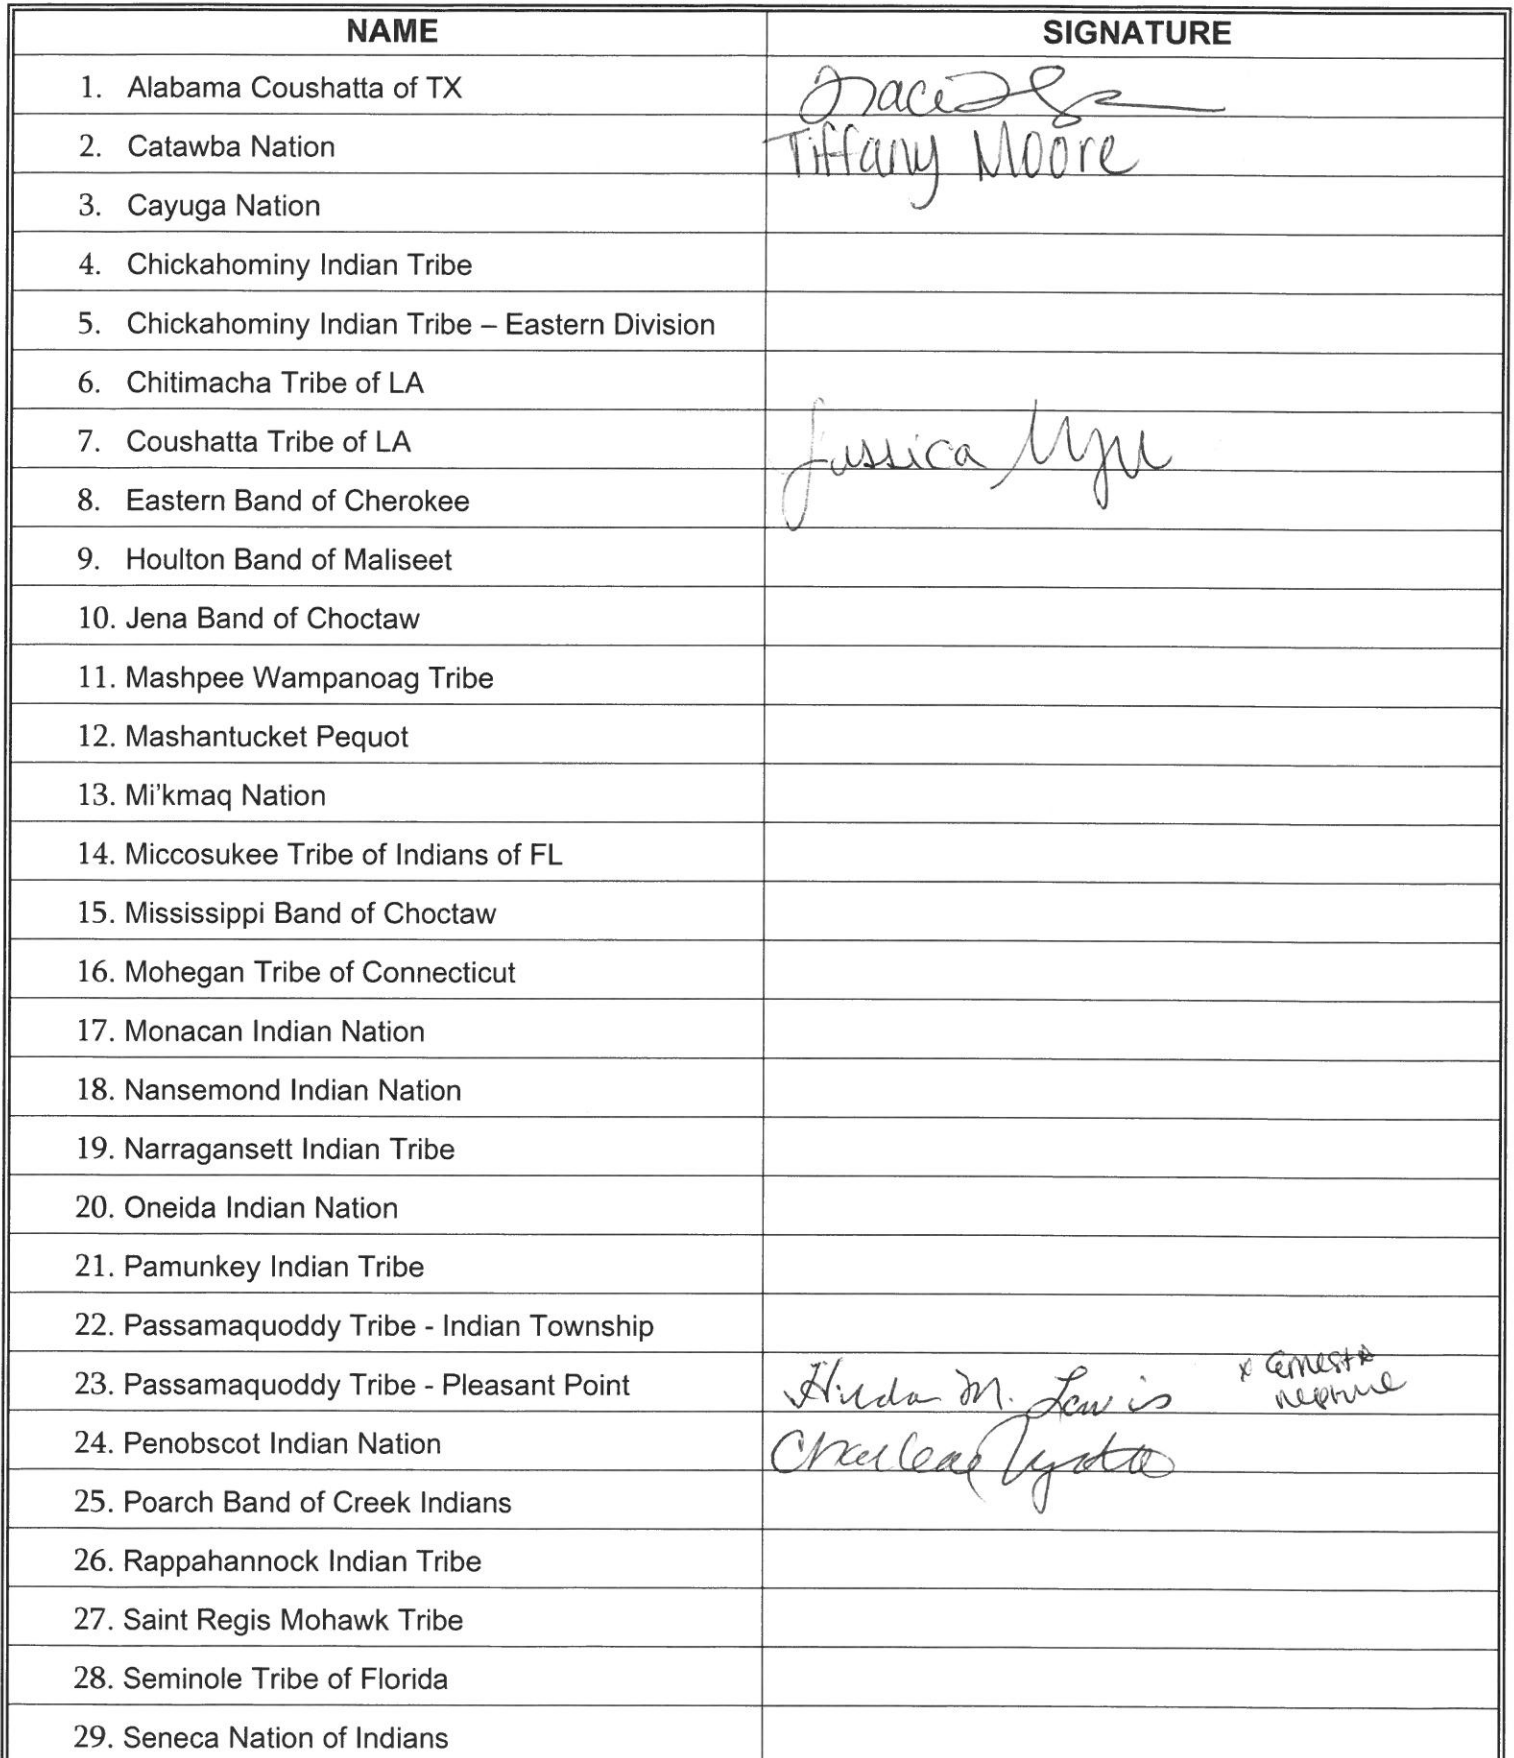 NAME SIGNATURE
1. Alabama Coushatta of TX Traci
2. Catawba Nation Tiffany Moore
3. Cayuga Nation
4. Chickahominy Indian Tribe
5. Chickahominy Indian Tribe – Eastern Division
6. Chitimacha Tribe of LA
7. Coushatta Tribe of LA Jessica
8. Eastern Band of Cherokee
9. Houlton Band of Maliseet
10. Jena Band of Choctaw
11. Mashpee Wampanoag Tribe
12. Mashantucket Pequot
13. Mi'kmaq Nation
14. Miccosukee Tribe of Indians of FL
15. Mississippi Band of Choctaw
16. Mohegan Tribe of Connecticut
17. Monacan Indian Nation
18. Nansemond Indian Nation
19. Narragansett Indian Tribe
20. Oneida Indian Nation
21. Pamunkey Indian Tribe
22. Passamaquoddy Tribe - Indian Township
23. Passamaquoddy Tribe - Pleasant Point Hilda M. Lewis * ernest *
neptune
24. Penobscot Indian Nation Charlene
25. Poarch Band of Creek Indians
26. Rappahannock Indian Tribe
27. Saint Regis Mohawk Tribe
28. Seminole Tribe of Florida
29. Seneca Nation of Indians